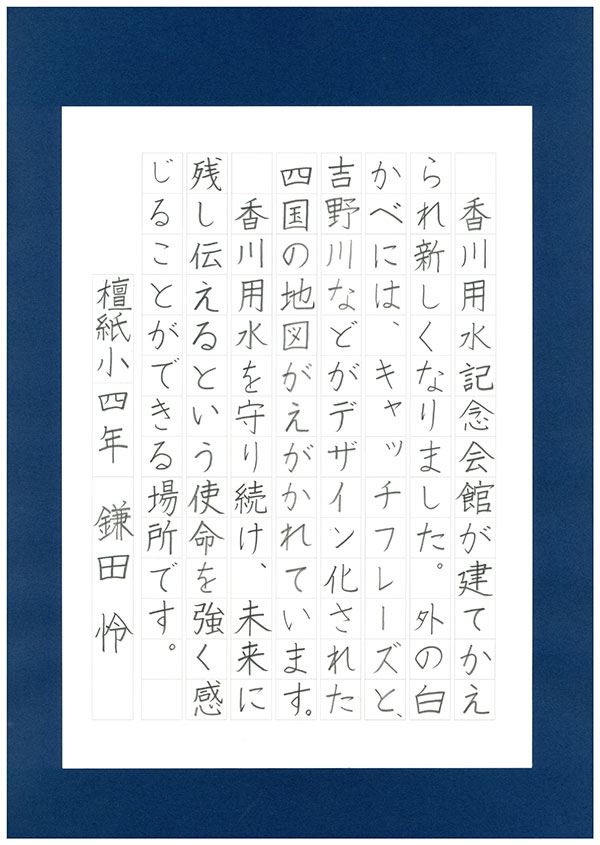 香川用水記念会館が建てかえ
られ新しくなりました。外の白
かべには、キャッチフレーズと、
吉野川などがデザイン化された
四国の地図がえがかれています。
　香川用水を守り続け、未来に
残し伝えるという使命を強く感
じることができる場所です。
檀紙小四年　鎌田　怜